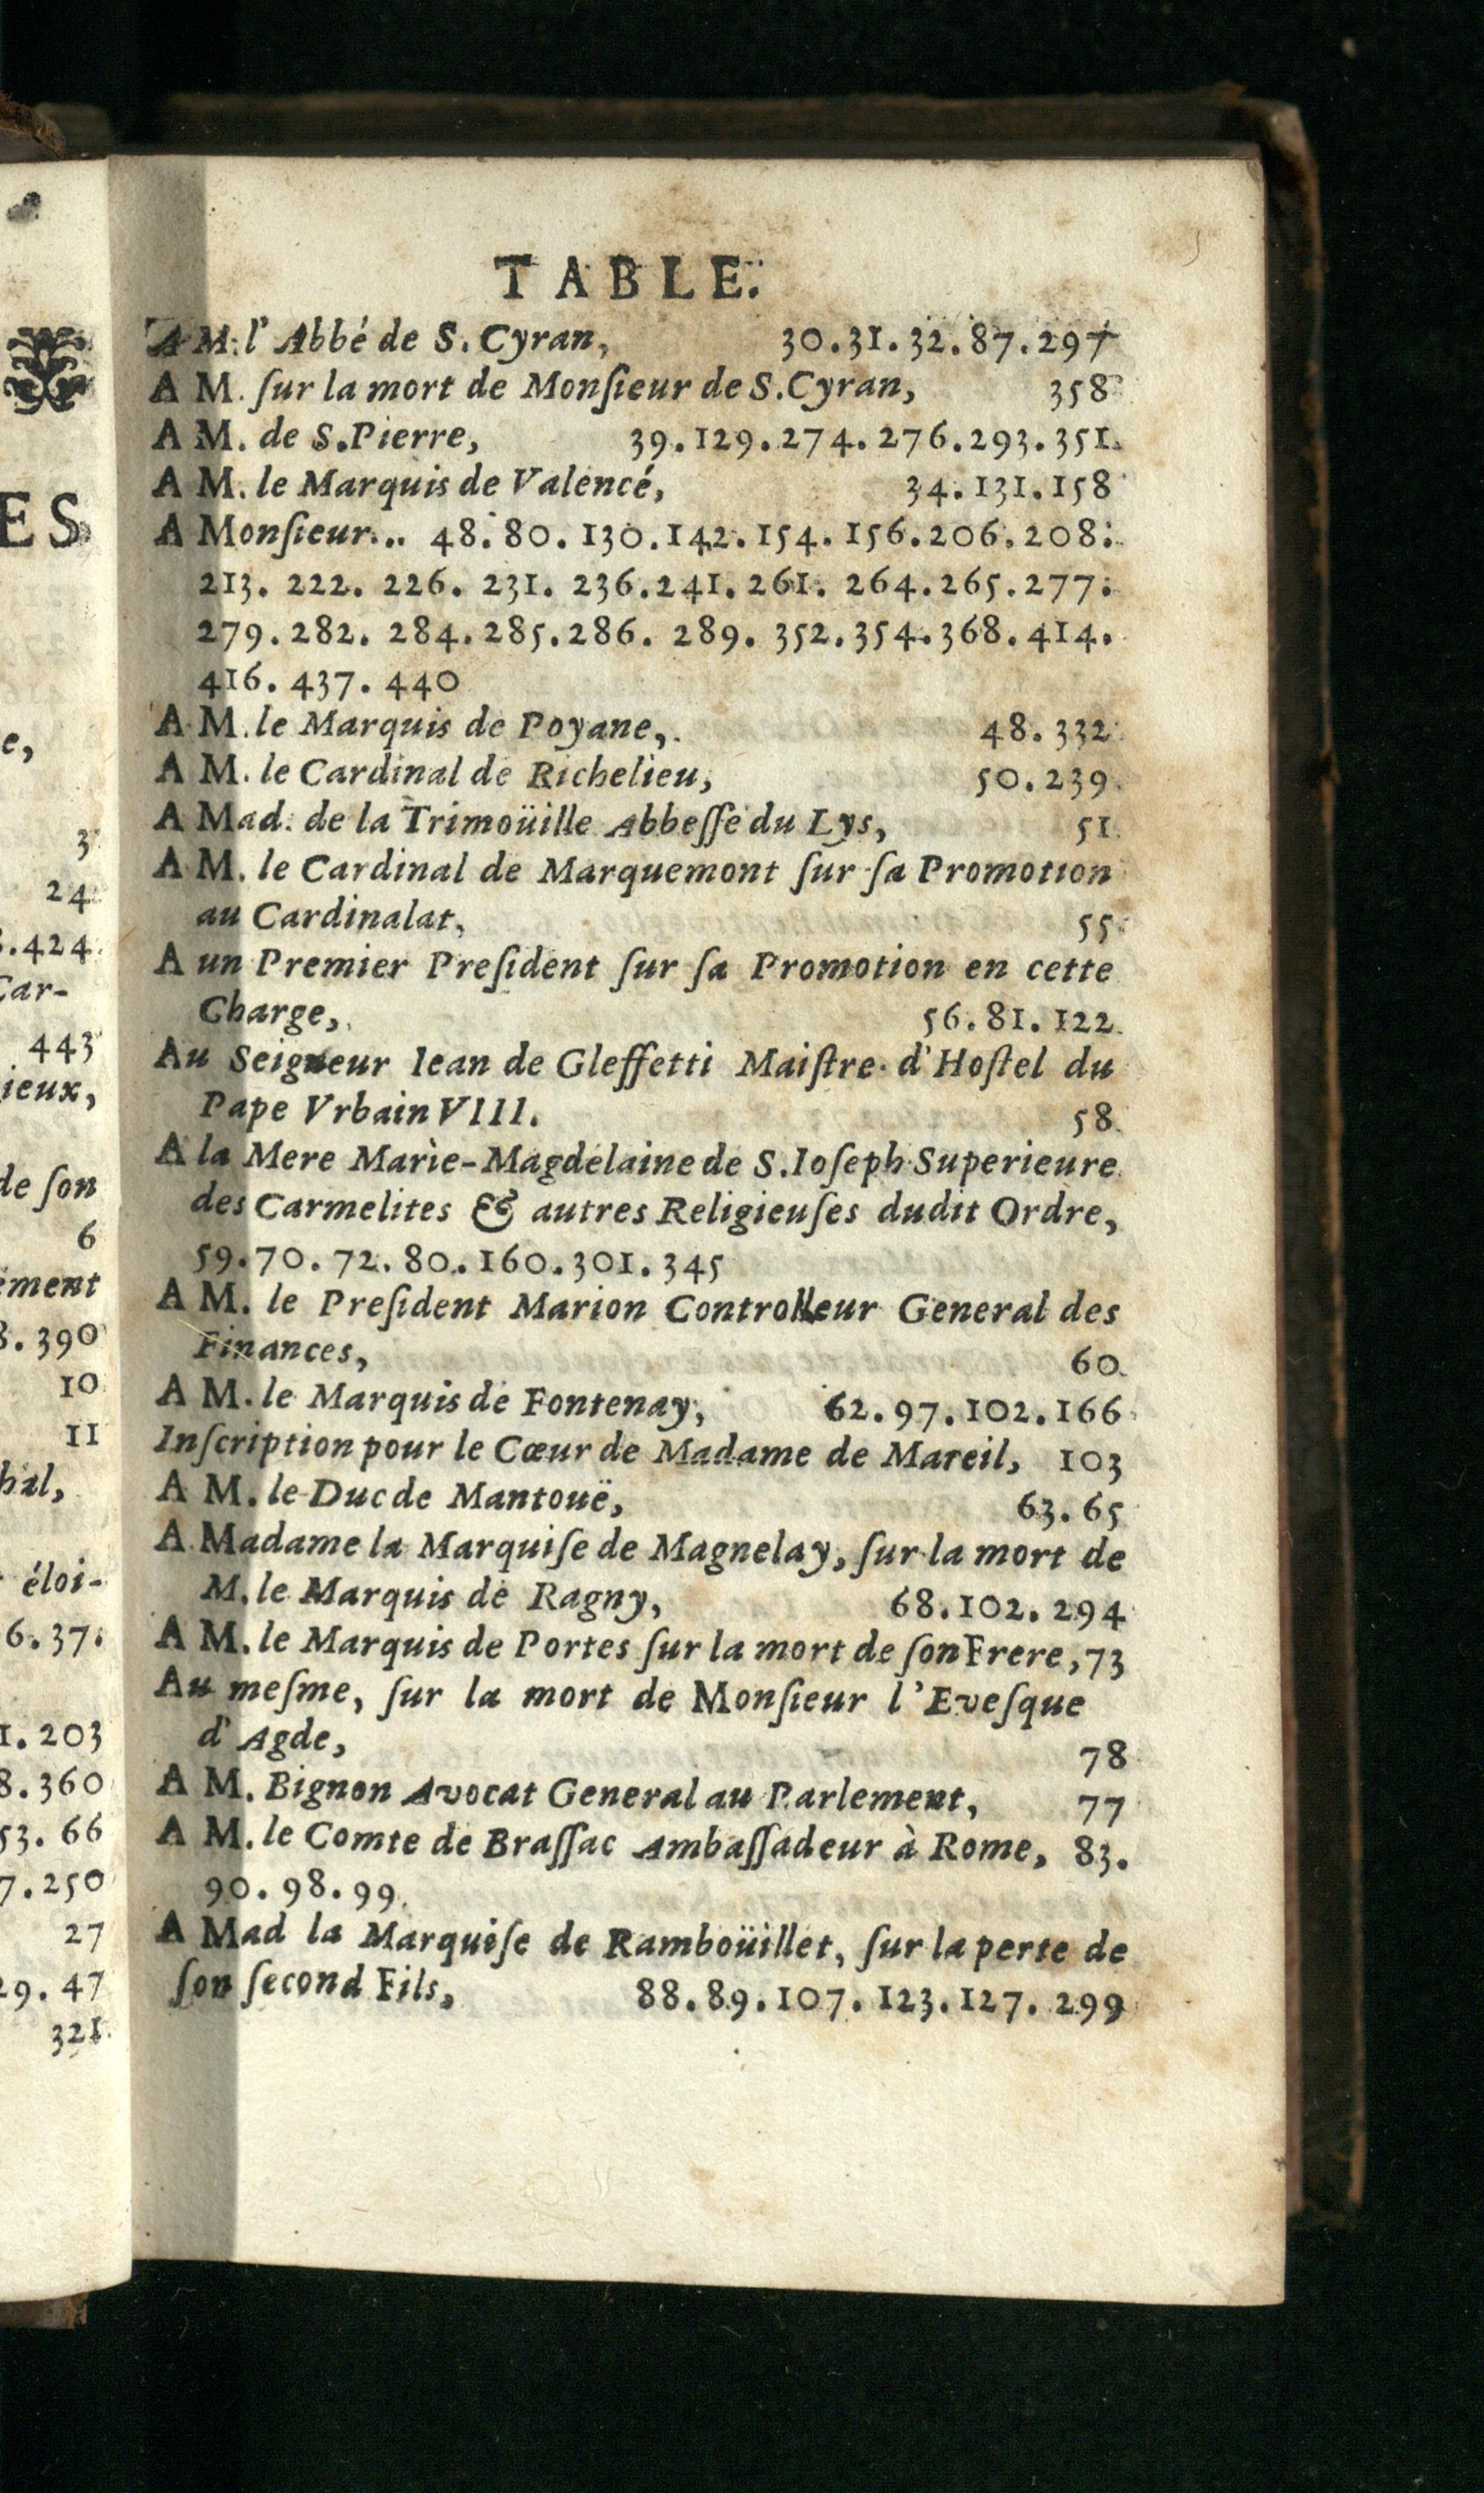 TABLE.
A M. l'Abbé de S. Cyran, 30.31.32.87.297
A M. ſur la mort de Monſieur de S.Cyran, 358
A M. de S.Pierre, 39.129.274.276.293.351.
A M. le Marquis de Valencé, 34.131.158
A Monſieur... 48.80.130.142.154.156.206.208.
213. 222. 226. 231. 236.241.261. 264.265.277.
279.282. 284.285.286. 289. 352.354.368.414.
416. 437. 440
A M. le Marquis de Poyane, 48. 332
A M. le Cardinal de Richelieu, 50.239.
A Mad. de la Trimoüille Abbeſſe du Lys, 51.
A M. le Cardinal de Marquemont ſur ſa Promotion
au Cardinalat, 55
A un Premier Preſident ſur ſa Promotion en cette
Charge, 56.81.122.
Au Seigneur Iean de Gleffetti Maiſtre d'Hoſtel du
Pape Vrbain VIII. 58.
A la Mere Marie-Magdelaine de S.Ioſeph Superieure
des Carmelites & autres Religieuſes dudit Ordre,
59.70.72.80.160.301.345
A M. le Preſident Marion Controlleur General des
Finances, 60.
A M. le Marquis de Fontenay, 62.97.102.166
Inſcription pour le Cœur de Madame de Mareil, 103
A M. le Duc de Mantouë, 63.65
A Madame la Marquiſe de Magnelay, ſur la mort de
M. le Marquis de Ragny, 68.102. 294
A M. le Marquis de Portes ſur la mort de ſon Frere, 73
Au meſme, ſur la mort de Monſieur l'Eveſque
d'Agde, 78
A M. Bignon Avocat General au Parlement, 77
A M. le Comte de Braſſac Ambaſſadeur à Rome, 83.
90.98.99.
A Mad la Marquiſe de Ramboüillet, ſur la perte de
ſon ſecond Fils, 88.89.107.123.127. 299